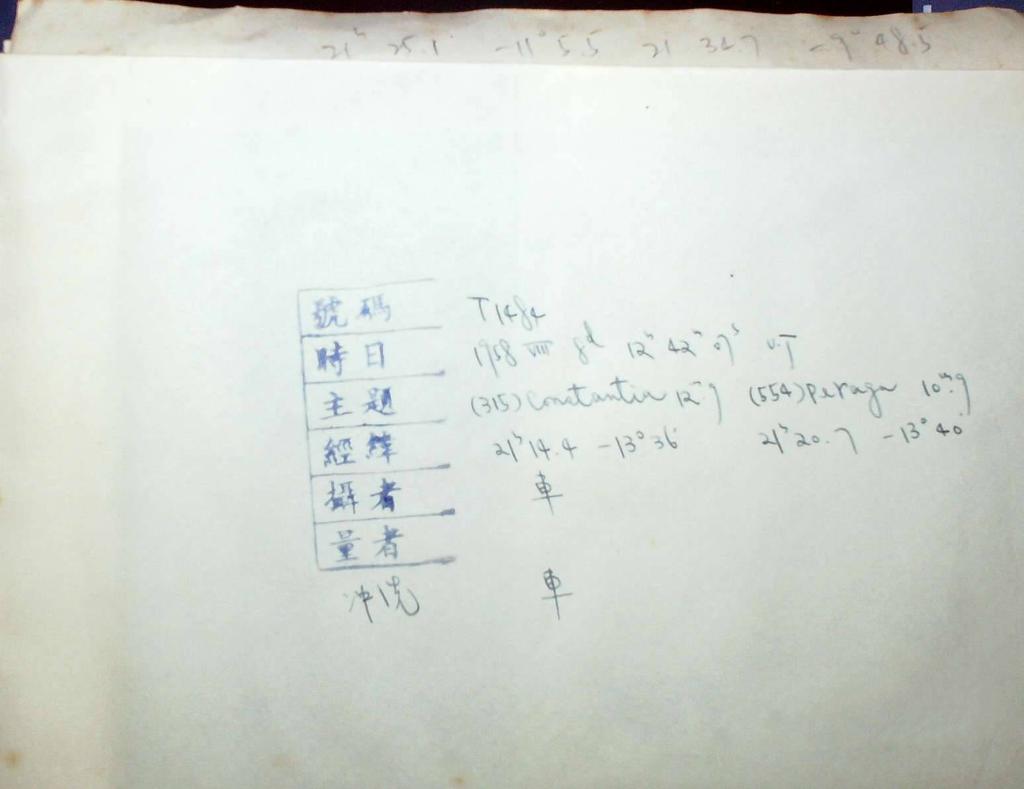 21ʰ 25.1 -11° 5.5 21 34.7 -9° 48.5
號碼 T1484
時日 1958 VIII 8ᵈ 12ʰ 42ᵐ 07ˢ U.T
主題 (315) Constantia 12ᵐ.9 (554) Peraga 10ᵐ.9
經緯 21ʰ14.4 -13°36′ 21ʰ20.7 -13°40′
攝者 車
量者
冲洗 車